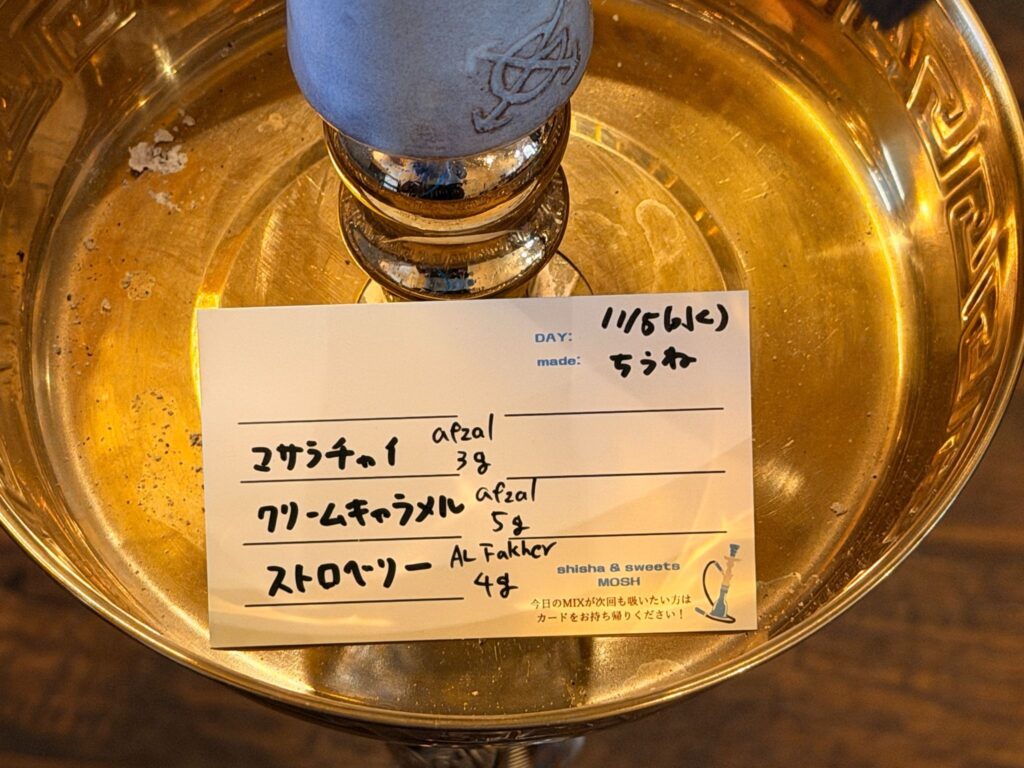 DAY: 11/5(水)
made: ちうね
マサラチャイ afzal 3g
クリームキャラメル afzal 5g
ストロベリー AL Fakher 4g
shisha & sweets
MOSH
今日のMIXが次回も吸いたい方は
カードをお持ち帰りください!